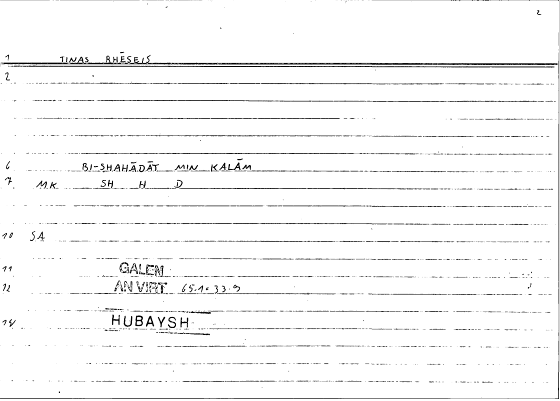 2
1 TINAS RHĒSEIS
2
6 BI-SHAHĀDĀT MIN KALĀM
7 MK SH H D
10 SA
11 GALEN
12 AN VIRT 65.1-33.9
14 HUBAYSH